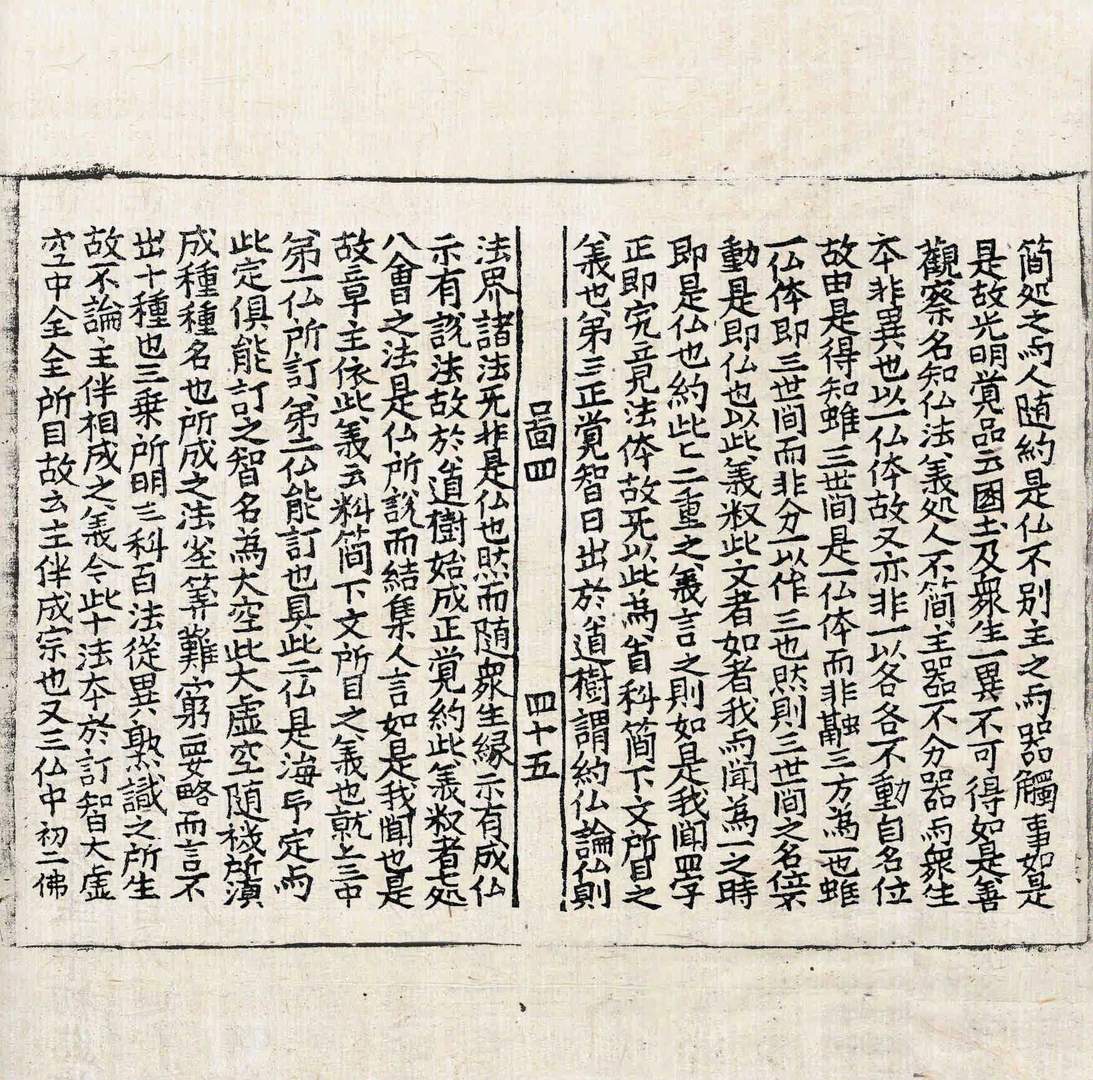 簡処之而人随約是仏不别主之而器觸事如是
是故光明覚品云國土及衆生一異不可得如是善
觀察名知仏法義処人不簡主器不分器而衆生
本非異也以一仏体故又亦非一以各各不動自名位
故由是得知雖三世間是一仏体而非融三方為一也雖
一仏体即三世間而非分一以作三也然則三世間之名案
動是即仏也以此義权此文者如者我而聞為一之時
即是仏也約此上二重之義言之則如是我聞四字
正即完竟見法体故死以此為首科簡下文所目之
義也第三正覚智日出於道樹謂約仏論仏則
啚四 四十五
法界諸法死非是仏也然而随衆生縁示有成仏
示有説法故於道樹始成正覚約此義权者七処
八會之法是仏所説而結集人言如是我聞也是
故章主依此義云料簡下文所目之義也就上三中
第一仏所訂第二仏能訂也具此二仏是海印定而
此定俱能訂之智名為大空此大虚空随機所滇
成種種名也所成之法坐筭難窮要略而言不
出十種也三乗所明三科百法從異熟識之所生
故不論主伴相成之義今此十法本於訂智大虚
空中全全所目故云主伴成宗也又三仏中初二佛